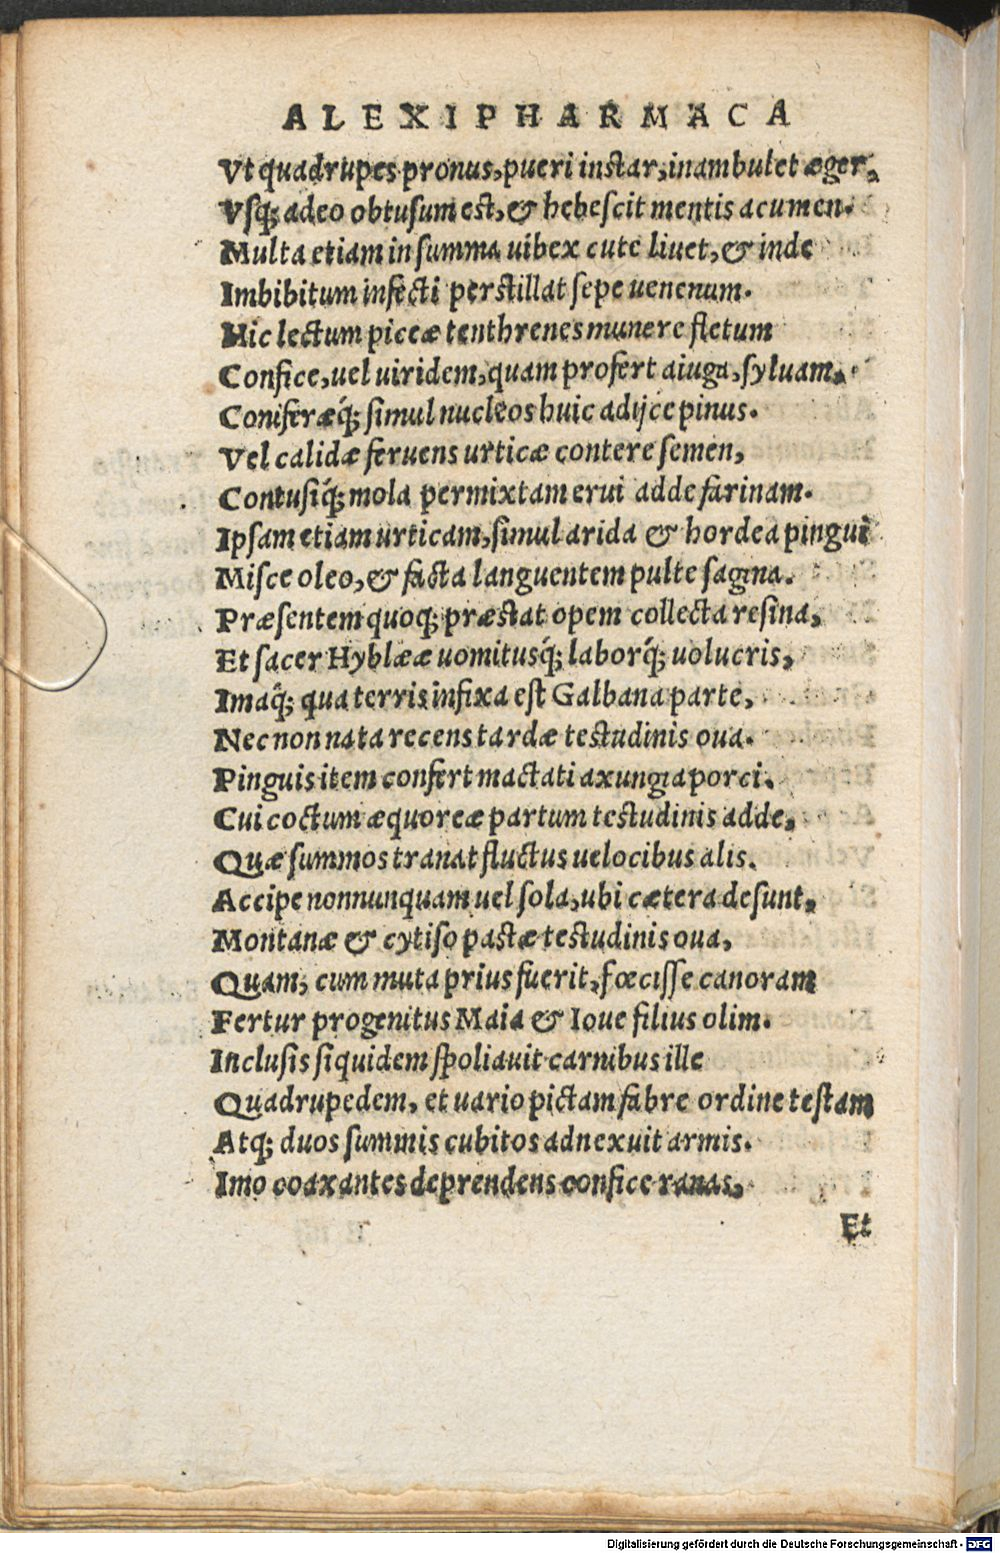 ALEXIPHARMACA
Vt quadrupes pronus, pueri instar, inambulet æger,
Vsq; adeo obtusum est, & hebescit mentis acumen.
Multa etiam in summa uibex cute liuet, & inde
Imbibitum infecti perstillat sepe uenenum.
Hic lectum piceæ tenthrenes munere fletum
Confice, uel uiridem, quam profert aiuga, syluam.
Coniferæq́; simul nucleos huic adijce pinus.
Vel calidæ feruens urticæ contere semen,
Contusiq́; mola permixtam erui adde farinam.
Ipsam etiam urticam, simul arida & hordea pingui
Misce oleo, & facta languentem pulte sagina.
Præsentem quoq; præstat opem collecta resina,
Et sacer Hyblææ uomitusq́; laborq́; uolucris,
Imaq́; qua terris infixa est Galbana parte,
Nec non nata recens tardæ testudinis oua.
Pinguis item confert mactati axungia porci.
Cui coctum æquoreæ partum testudinis adde,
Quæ summos tranat fluctus uelocibus alis.
Accipe nonnunquam uel sola, ubi cætera desunt,
Montanæ & cytiso pastæ testudinis oua,
Quam, cum muta prius fuerit, fœcisse canoram
Fertur progenitus Maia & Ioue filius olim.
Inclusis siquidem spoliauit carnibus ille
Quadrupedem, et uario pictam fabre ordine testam
Atq; duos summis cubitos adnexuit armis.
Imo coaxantes deprendens confice ranas,
Et
Digitalisierung gefördert durch die Deutsche Forschungsgemeinschaft - DFG